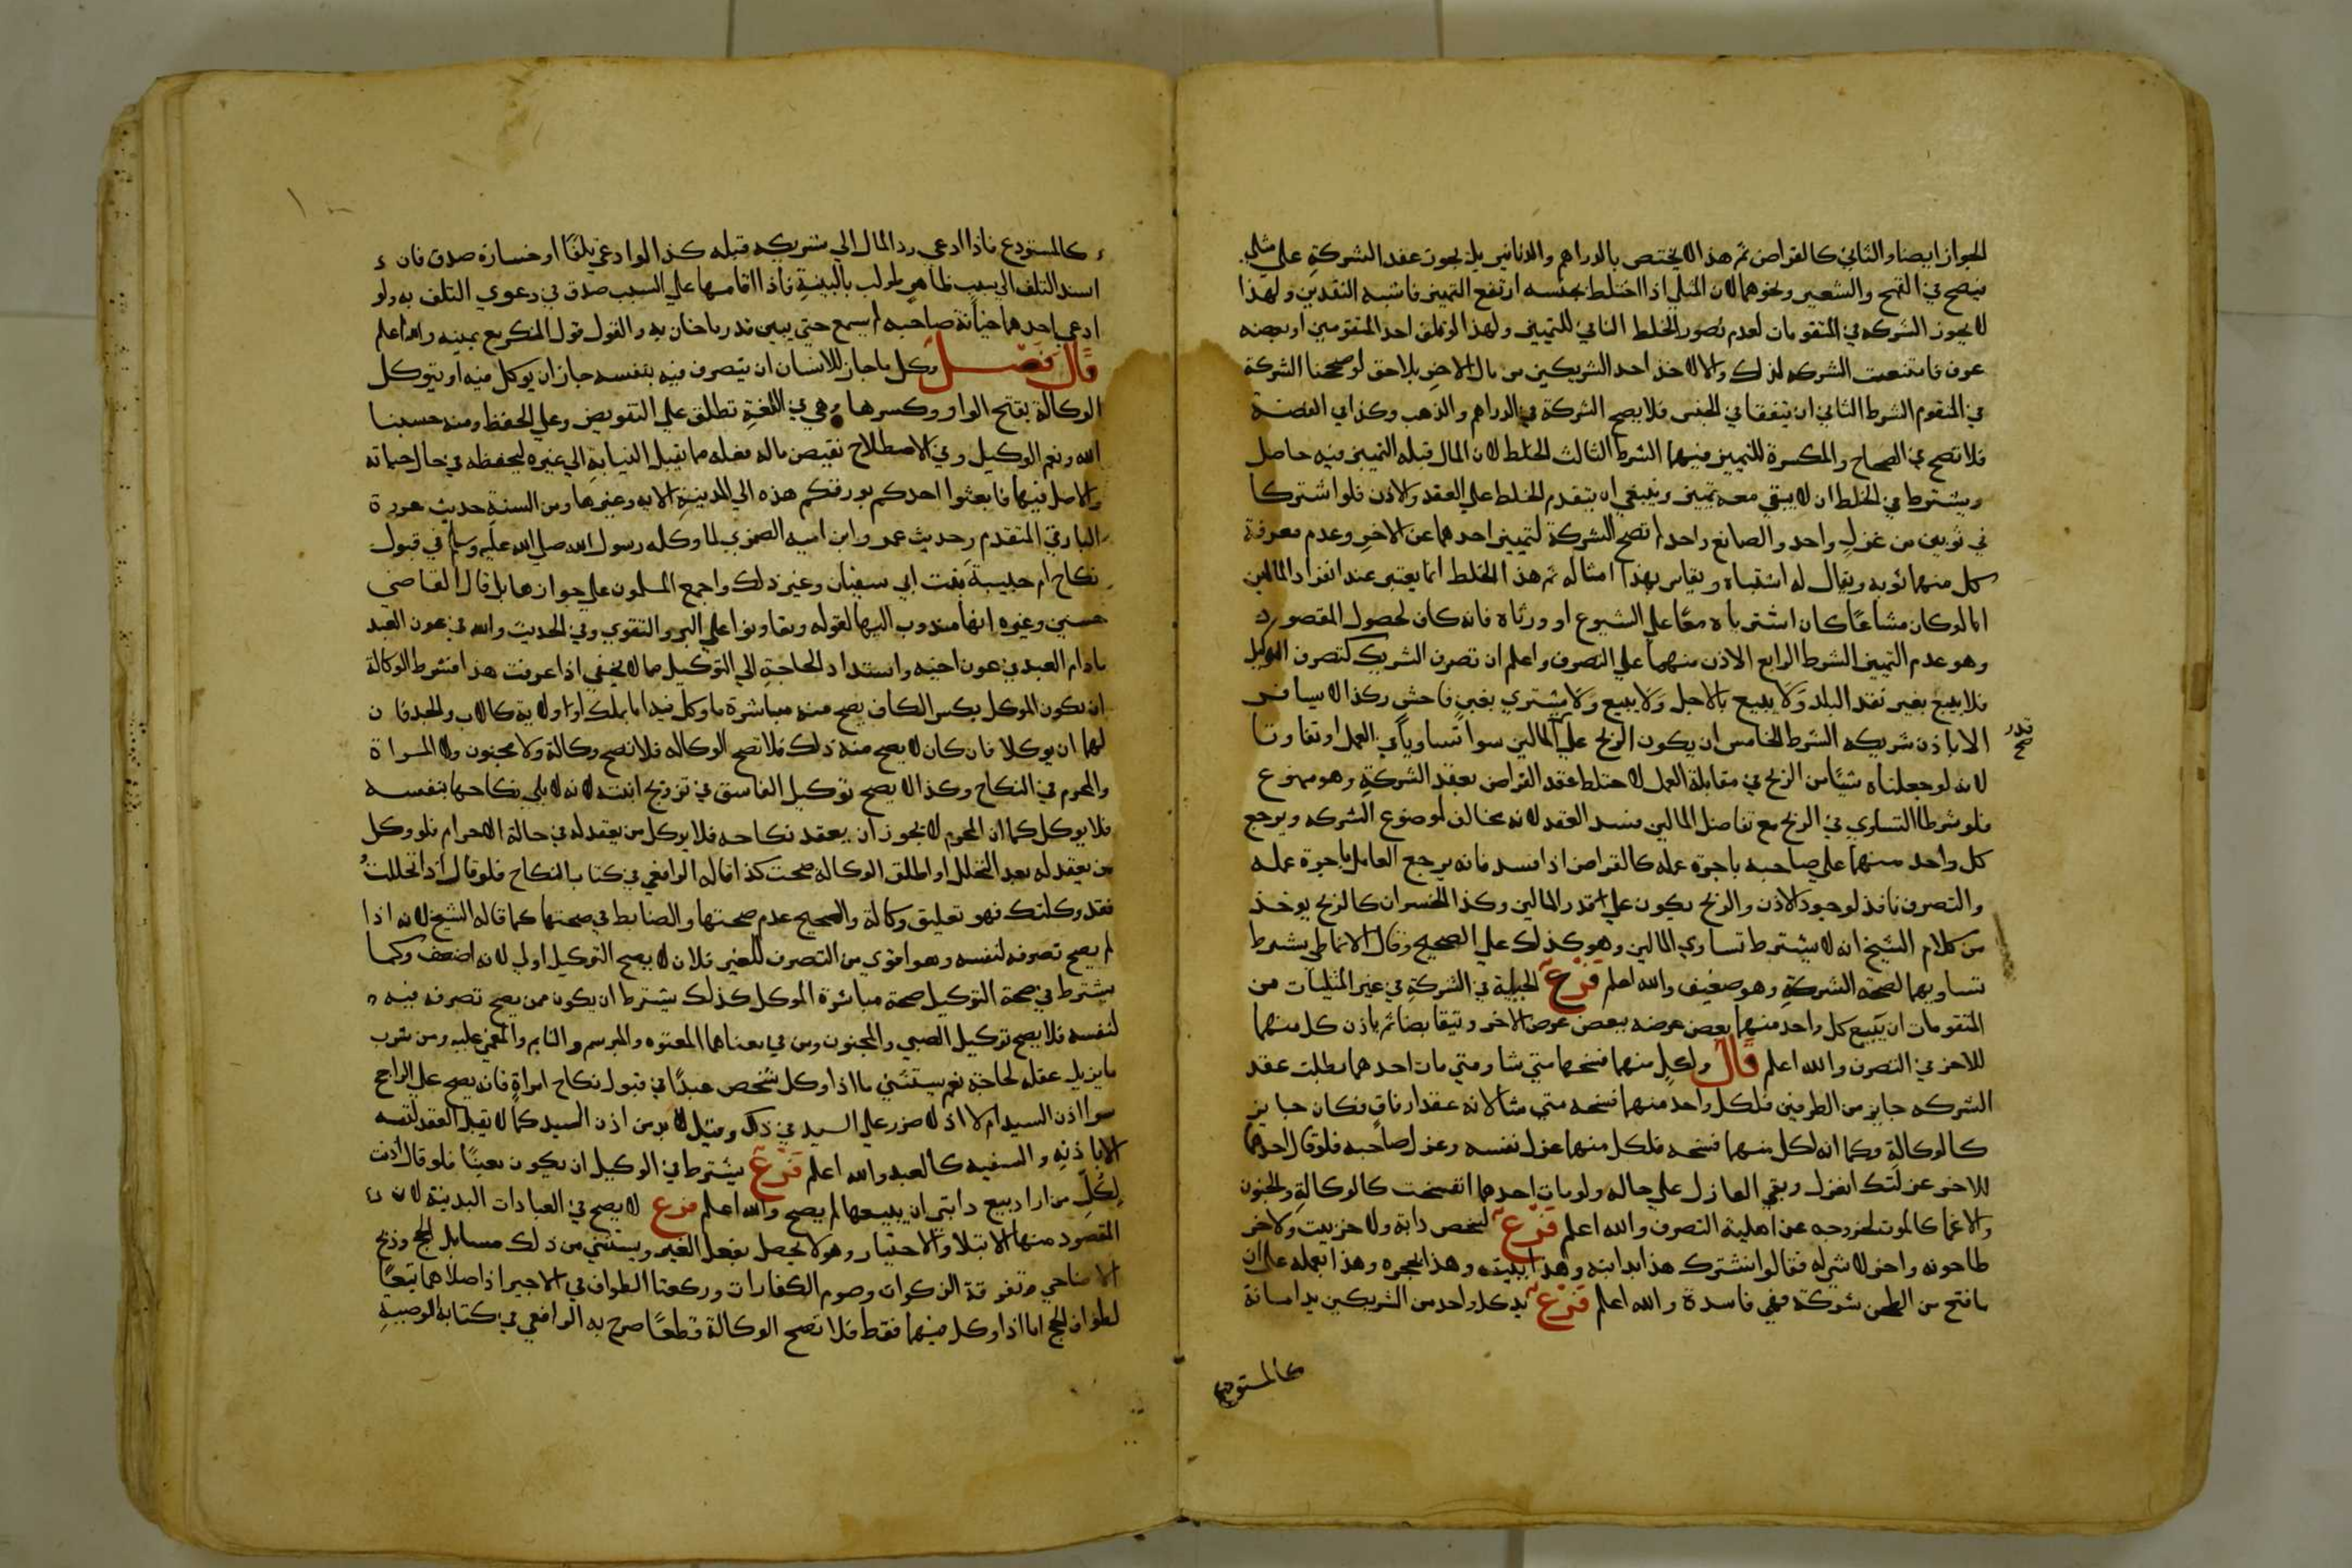 الجواز ايضا والثاني كالقراض ثم هذا لا يختص بالدراهم والدنانير بل يجوز عقد الشركة علي مثلي
فيصح في القمح والشعير ونحوهما لان المثلي اذا اختلط بجنسه ارتفع التميز فاشبه النقدين ولهذا
لا يجوز الشركه في المتقومات لعدم تصور الخلط النافي للتمييز ولهذا لو تلف احد المتقومين او بعضه
عرف فامتنعت الشركه لذلك والا لاخذ احد الشريكين من مال الاخر بلا حق لو صححنا الشركة
في المتقوم الشرط الثاني ان يتفقا في الجنس فلا يصح الشركة في الدراهم والذهب وكذا في الصفة
فلا تصح في الصحاح والمكسرة للتمييز فيهما الشرط الثالث الخلط لان المال قبله التميز فيه حاصل
ويشترط في الخلط ان لا يبقي معه تميز وينبغي ان يتقدم الخلط علي العقد والاذن فلو اشتركا
في ثوبين من غزل واحد والصانع واحد لم تصح الشركة لتمييز احدهما عن الاخر وعدم معرفة
كل منهما ثوبه ويقال له اشتباه ويقاس بهذا امثاله ثم هذا الخلط انما يعتبر عند انفراد المالين
اما لو كان مشاعا كان اشترياه معا علي الشيوع او ورثاه فانه كاف لحصول المقصود
وهو عدم التمييز الشرط الرابع الاذن منهما علي التصرف واعلم ان تصرف الشريك كتصرف الوكيل
فلا يبيع بغير نقد البلد ولا يبيع بالاجل ولا يبيع ولا يشتري بغبن فاحش وكذا لا يسافر
الا باذن شريكه الشرط الخامس ان يكون الربح علي المالين سوا تساويا في العمل او تفاوتا
قدر صح
لانه لو جعلناه شيئا من الربح في مقابلة العمل لاختلط عقد القراض بعقد الشركة وهو ممنوع
فلو شرطا التساوي في الربح مع تفاضل المالين فسد العقد لانه مخالف لموضوع الشركه ويرجع
كل واحد منهما علي صاحبه باجرة عمله كالقراض اذا فسد فانه يرجع العامل باجرة عمله
والتصرف نافذ لوجود الاذن والربح يكون علي قدر المالين وكذا الخسران كالربح يوخذ
من كلام الشيخ انه لا يشترط تساوي المالين وهو كذلك علي الصحيح وقال الانماطي يشرط
تساويهما لصحة الشركة وهو ضعيف والله اعلم فرع الحيلة في الشركة في غير المثليات من
المتقومات ان يبيع كل واحد منهما بعض عرضه ببعض عرض الاخر ويتقابضا ثم ياذن كل منهما
للاخر في التصرف والله اعلم قال ولكل منهما فسخها متي شا ومتي مات احدهما بطلت عقد
الشركه جايز من الطرفين فلكل واحد منهما فسخه متي شا لانه عقد ارفاق فكان جايز
كالوكالة وكما انه لكل منهما فسخه فلكل منهما عزل نفسه وعزل صاحبه فلو قال احدهما
للاخر عزلتك انعزل وبقي العازل علي حاله ولو مات احدهما انفسخت كالوكالة والجنون
والاغما كالموت لخروجه عن اهلية التصرف والله اعلم فرع لشخص دابة ولاخر بيت ولاخر
طاحونه واخر لا شي له فقالوا نشترك هذا بدابته وهذا ببيته وهذا بحجره وهذا بعمله علي ان
ما فتح من الطحن شركة فهي فاسدة والله اعلم فرع يد كل واحد من الشريكين يد امانة
كالمستودع
كالمستودع فاذا ادعي رد المال الي شريكه قبله كذا لو ادعي تلفا او خسارة صدق فان
اسند التلف الي سبب ظاهر طولب بالبينة فاذا اقامها علي السبب صدق في دعوي التلف به ولو
ادعي احدهما خيانة صاحبه لم يسمع حتي يبين قدر ما خان به والقول قول المنكر مع يمينه والله اعلم
قال فصل وكل ما جاز للانسان ان يتصرف فيه بنفسه جاز ان يوكل فيه او يتوكل
الوكالة بفتح الواو وكسرها وهي في اللغة تطلق علي التفويض وعلي الحفظ ومنه حسبنا
الله ونعم الوكيل وفي الاصطلاح تفويض ماله فعله مما يقبل النيابة الي غيره ليحفظه في حال حياته
والاصل فيها فابعثوا احدكم بورقكم هذه الي المدينة الايه وغيرها ومن السنة حديث عروة
البارقي المتقدم وحديث عمرو ابن اميه الضمري لما وكله رسول الله صلي الله عليه وسلم في قبول
نكاح ام حبيبة بنت ابي سفيان وغير ذلك واجمع المسلمون علي جوازها بل قال القاضي
حسين وغيره انها مندوب اليها لقوله وتعاونوا علي البر والتقوي وفي الحديث والله في عون العبد
مادام العبد في عون اخيه واشتداد الحاجة الي التوكيل مما لا يخفي اذا عرفت هذا فشرط الوكالة
ان يكون الموكل بكسر الكاف يصح منه مباشرة ما وكل فيه اما بملك او ولاية كالاب والجد فان
لهما ان يوكلا فان كان لا يصح منه ذلك فلا تصح الوكاله فلا تصح وكالة ولا مجنون ولا المراة
والمحرم في النكاح وكذا لا يصح توكيل الفاسق في تزويج ابنته لانه لا يلي نكاحها بنفسه
فلا يوكل كما ان المحرم لا يجوز ان يعقد نكاحه فلا يوكل من يعقد له في حالة الاحرام فلو وكل
من يعقد له بعد التحلل او اطلق الوكاله صحت كذا قاله الرافعي في كتاب النكاح فلو قال اذا تحللت
فقد وكلتك فهو تعليق وكالة والصحيح عدم صحتها والضابط في صحتها كما قاله الشيخ لانه اذا
لم يصح تصرفه لنفسه وهو اقوي من التصرف للغير فلان لا يصح التوكيل اولي لانه اضعف وكما
يشترط في صحة التوكيل صحة مباشرة الموكل كذلك يشترط ان يكون ممن يصح تصرفه فيه
لنفسه فلا يصح توكيل الصبي والمجنون ومن في معناهما المعتوه والمبرسم والنايم والمغمي عليه ومن شرب
ما يزيل عقله لحاجة نعم يستثني ما اذا وكل شخص عبدا في قبول نكاح امراة فانه يصح علي الراجح
سوا اذن السيد ام لا اذ لا ضرر علي السيد في ذلك وقيل لا بد من اذن السيد كما لا يقبل العقد لنفسه
الا باذنه والسفيه كالعبد والله اعلم فرع يشترط في الوكيل ان يكون معينا فلو قال اذنت
لكل من اراد بيع دابتي ان يبيعها لم يصح والله اعلم فرع لا يصح في العبادات البدنية لان
المقصود منها الابتلا والاختبار وهو لا يحصل بفعل الغير ويستثني من ذلك مسايل الحج وذبح
الاضاحي وتفرقة الزكوات وصوم الكفارات وركعتا الطواف في الاجير اذا صلاهما تبعا
لطواف الحج اما اذا وكل فيهما فقط فلا تصح الوكالة قطعا صرح به الرافعي في كتابه الوصية